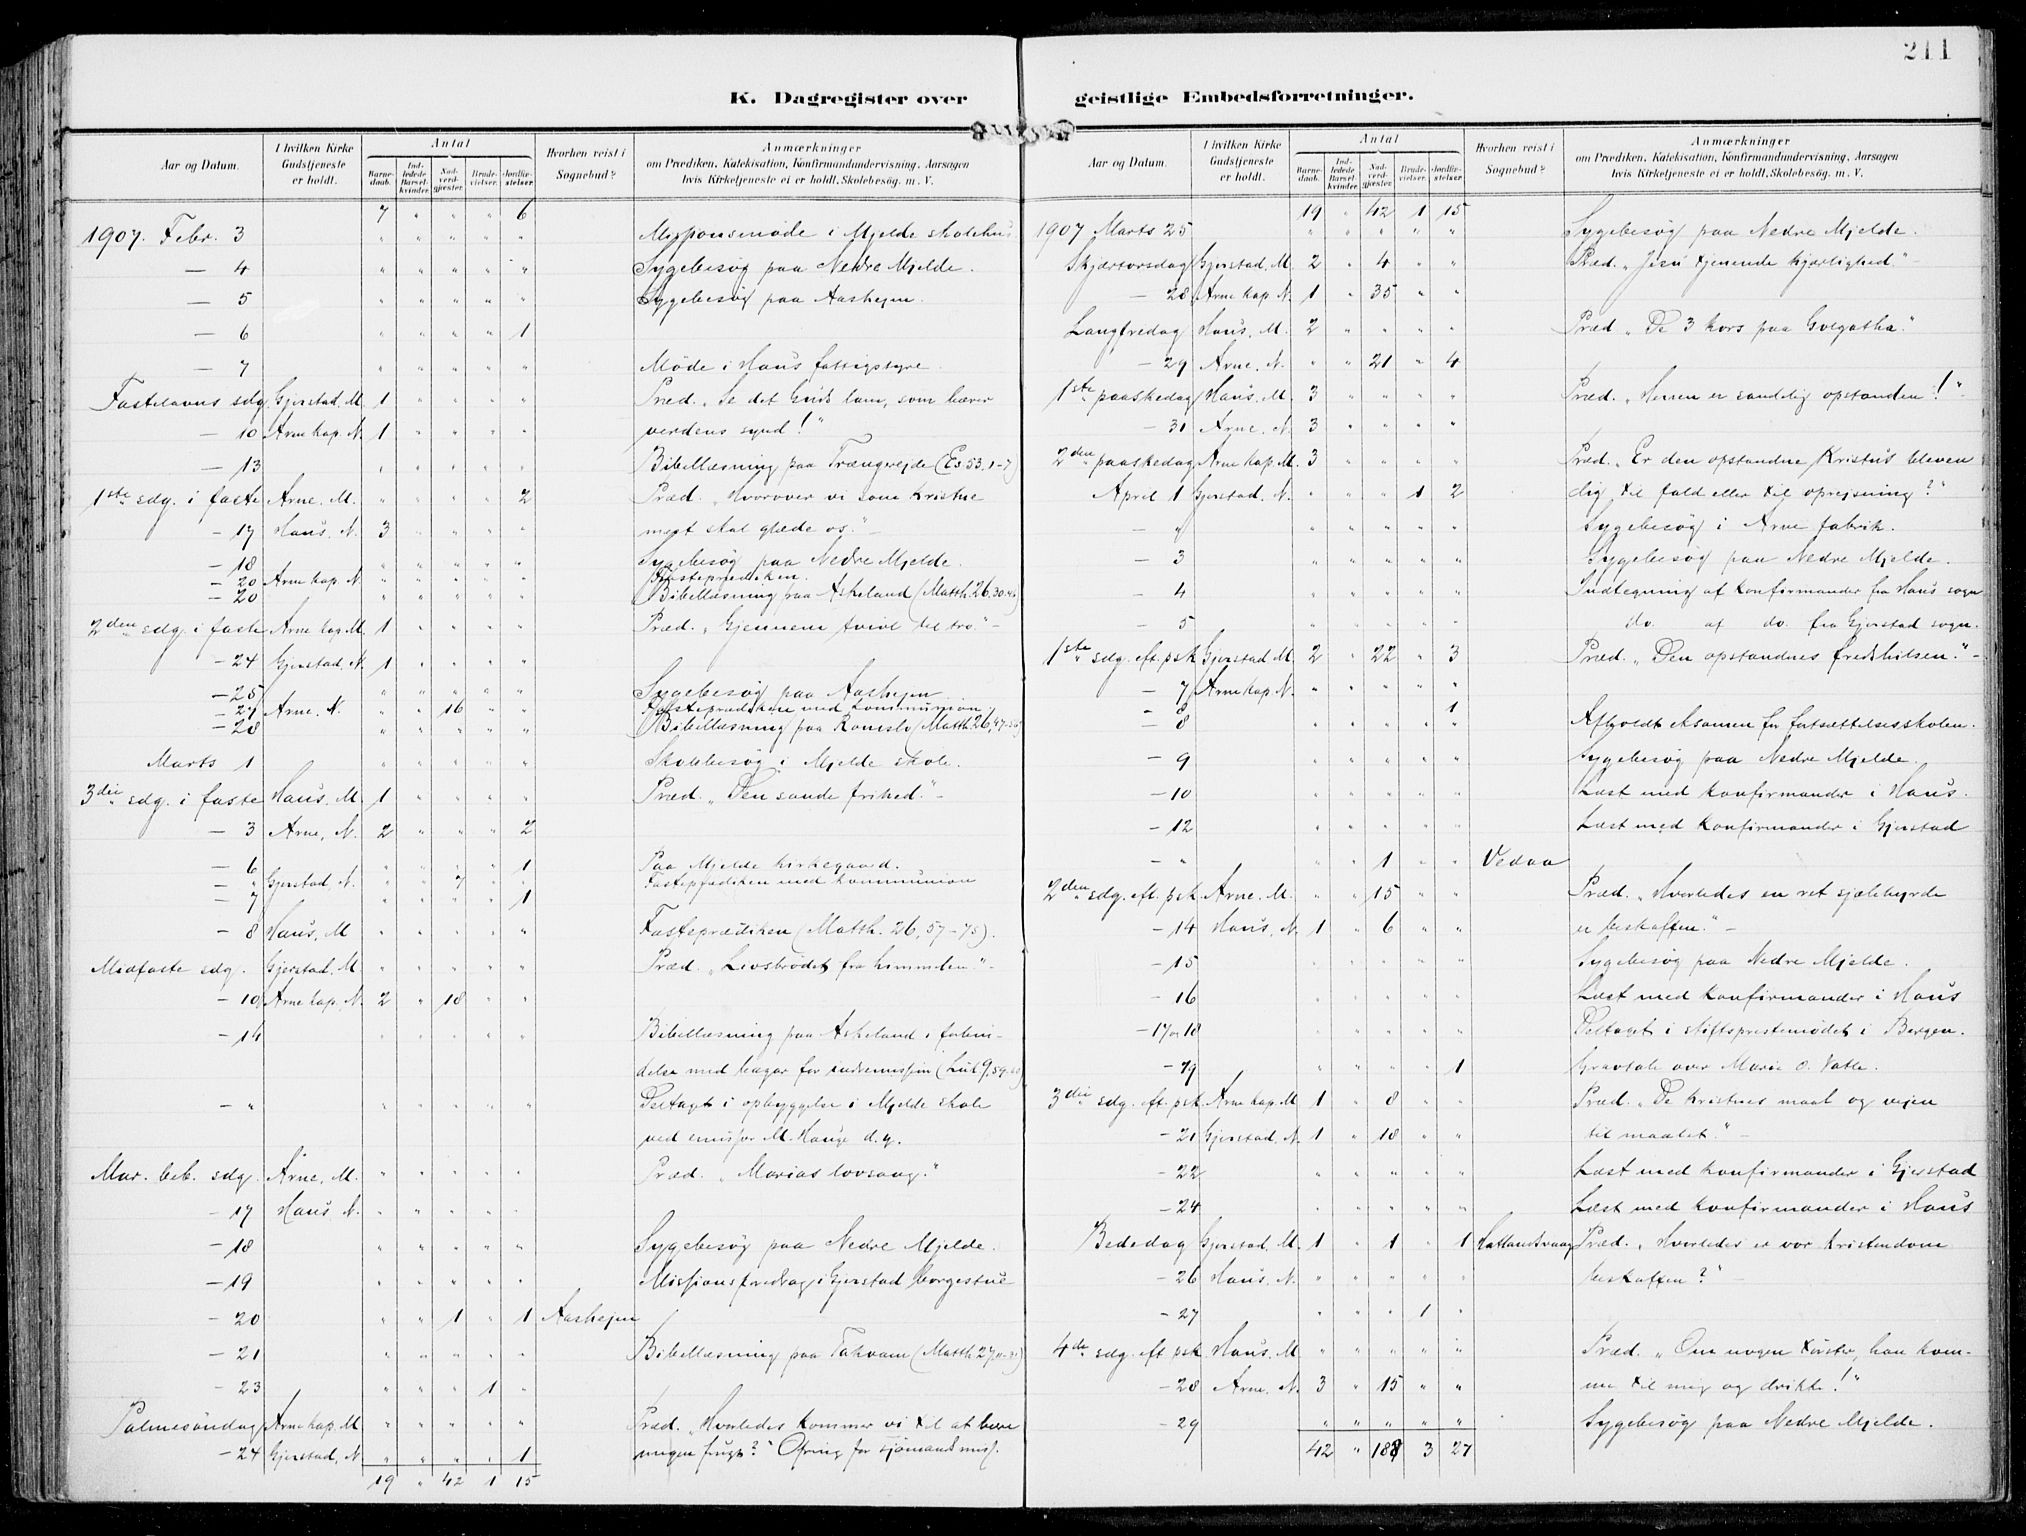 211
K. Dagregister over geistlige Embedsforretninger.
Aar og Datum. | I hvilken Kirke Gudstjeneste er holdt. | Antal | Barnedaab. | Indledede Barselkvinder. | Nadverdgjæster. | Brudevielser. | Jordfæstelser. | Hvorhen reist i Sognebud? | Anmærkninger om Prædiken, Katekisation, Konfirmandundervisning, Aarsagen hvis Kirketjeneste ei er holdt, Skolebesøg. m. V.
7 " " " 6
1907. Febr. 3 " " " " " Missionsmøde i Mjelde skolehus
— 4 " " " " " Sygebesøg paa Nedre Mjelde.
— 5 " " " " " Sygebesøg paa Aashejen.
— 6 " " " " 1
— 7 " " " " " Møde i Haus fattigstyre.
Fastelavns sdg. Gjerstad, M. 1 " " " " Præd. „Se det Guds lam, som bærer
— 10 Arne kap. N. 1 " " " " verdens synd!"
— 13 " " " " " Bibellæsning paa Trængerejde (Es. 53, 1-7)
1ste sdg. i faste Arne. M. " " " " 2 Præd. „Hvorover vi som kristne
— 17 Haus. N. 3 " " " " mest skal glæde os." —
— 18 " " " " " Sygebesøg paa Nedre Mjelde.
— 20 Arne kap. N. " " " " " Fasteprædiken.
— 20 " " " " " Bibellæsning paa Askeland (Matth. 26, 30-46)
2den sdg. i faste Arne kap. M. 1 " " " " Præd. „Gjennem tvivl til tro." —
— 24 Gjerstad, N. 1 " " " "
— 25 " " " " " Sygebesøg paa Aashejen
— 27 Arne. N. " " 16 " " Fasteprædiken med kommunion.
— 28 " " " " " Bibellæsning paa Romslo (Matth. 26, 47-56)
Marts 1 " " " " " Skolebesøg i Mjelde skole.
3die sdg. i faste Haus, M. 1 " " " " Præd. „Den sande frihed." —
— 3 Arne, N. 2 " " " 2
— 6 " " " " 1 Paa Mjelde kirkegaard.
— " Gjerstad, N. " " 7 " " Fasteprædiken med kommunion
— 7 " " " " 1
— 8 Haus, M " " " " " Fasteprædiken (Matth. 26, 57-75).
Midfaste sdg. Gjerstad, M " " " " " Præd. „Livsbrødet fra himmelen." —
— 10 Arne kap. N. 2 " 18 " "
— 14 " " " " " Bibellæsning paa Askeland i forbin-
delse med bazar for indremissjon (Luk 9, 59-60)
— " " " " " " Deltaget i opbyggelse i Mjelde skole
ved emissær M. Hauge d. y.
Mar. beb. sdg. Arne, M. " " " " " Præd. „Marias lovsang."
— 17 Haus, N. " " " " "
— 18 " " " " " Sygebesøg paa Nedre Mjelde.
— 19 " " " " " Missionsforedrag i Gjerstad borgestue
— 20 " " 1 " 1 Aashejen
— 21 " " " " " Bibellæsning paa Takvam (Matth 27, 11-31)
— 23 " " " 1 "
Palmesøndag Arne kap. M " " " " " Præd. „Hvorledes kommer vi til at bære
— 24 Gjerstad, N " " " " 1 megen frugt?" Ofring for sjømandsmiss.
19 " 42 1 15
Aar og Datum. | I hvilken Kirke Gudstjeneste er holdt. | Antal | Barnedaab. | Indledede Barselkvinder. | Nadverdgjæster. | Brudevielser. | Jordfæstelser. | Hvorhen reist i Sognebud? | Anmærkninger om Prædiken, Katekisation, Konfirmandundervisning, Aarsagen hvis Kirketjeneste ei er holdt, Skolebesøg. m. V.
19 " 42 1 15
1907 Marts 25 " " " " " Sygebesøg paa Nedre Mjelde.
Skjærtorsdag Gjerstad, M. 2 " 4 " " Præd. „Jesu tjenende kjærlighed." —
— 28 Arne kap. N. 1 " 35 " "
Langfredag Haus, M. 2 " " " " Præd „De 3 kors paa Golgatha."
— 29 Arne. N. " " 21 " 4
1ste paaskedag Haus, M. 3 " " " " Præd. „Herren er sandelig opstanden!" —
— 31 Arne. N. 3 " " " "
2den paaskedag Arne kap. M. 3 " " " " Præd. „Er den opstandne Kristus bleven
April 1 Gjerstad. N. " " " 1 2 dig til fald eller til oprejsning?"
— " " " " " " Sygebesøg i Arne fabrik.
— 3 " " " " " Sygebesøg paa Nedre Mjelde.
— 4 " " " " " Indtegning af konfirmander fra Haus sogn
— 5 " " " " " do. af do. fra Gjerstad sogn.
1ste sdg. eft. psk. Gjerstad M. 2 " 22 " 3 Præd. „Den opstandnes fredshilsen." —
— 7 Arne kap. N. " " " " "
— 8 " " " " 1
— 8 " " " " " Afholdt eksamen for fortsættelsesskolen.
— 9 " " " " " Sygebesøg paa Nedre Mjelde.
— 10 " " " " " Læst med konfirmander i Haus.
— 12 " " " " " Læst med konfirmander i Gjerstad
— " " " 1 " " Vedaa
2den sdg. eft. psk. Arne. M. " " 15 " " Præd. „Hvorledes en ret sjælehyrde
— 14 Haus, N. 1 " 6 " " er beskaffen." —
— 15 " " " " " Sygebesøg paa Nedre Mjelde.
— 16 " " " " " Læst med konfirmander i Haus
— 17 og 18 " " " " " Deltaget i stiftsprestemødet i Bergen.
— 19 " " " " 1 Gravtale over Marie O. Vatle.
3die sdg. eft. psk. Arne kap. M 1 " 8 " " Præd. „De kristnes maal og vejen
— 21 Gjerstad, N. 1 " 18 " " til maalet." —
— 22 " " " " " Læst med konfirmander i Gjerstad
— 24 " " " " " Læst med konfirmander i Haus
Bededag Gjerstad, M. 1 " 1 " 1 Hatlandsvaag Præd. „Hvorledes er vor kristendom
— 26 Haus, N. " " " " " beskaffen?" —
— 27 " " " 1 "
4de sdg. eft. psk. Haus, M " " " " " Præd. „Om nogen tørster, han kom-
— 28 Arne, N. 3 " 15 " " me til mig og drikke!"
— 29 " " " " " Sygebesøg paa Nedre Mjelde.
42 " 187 3 27